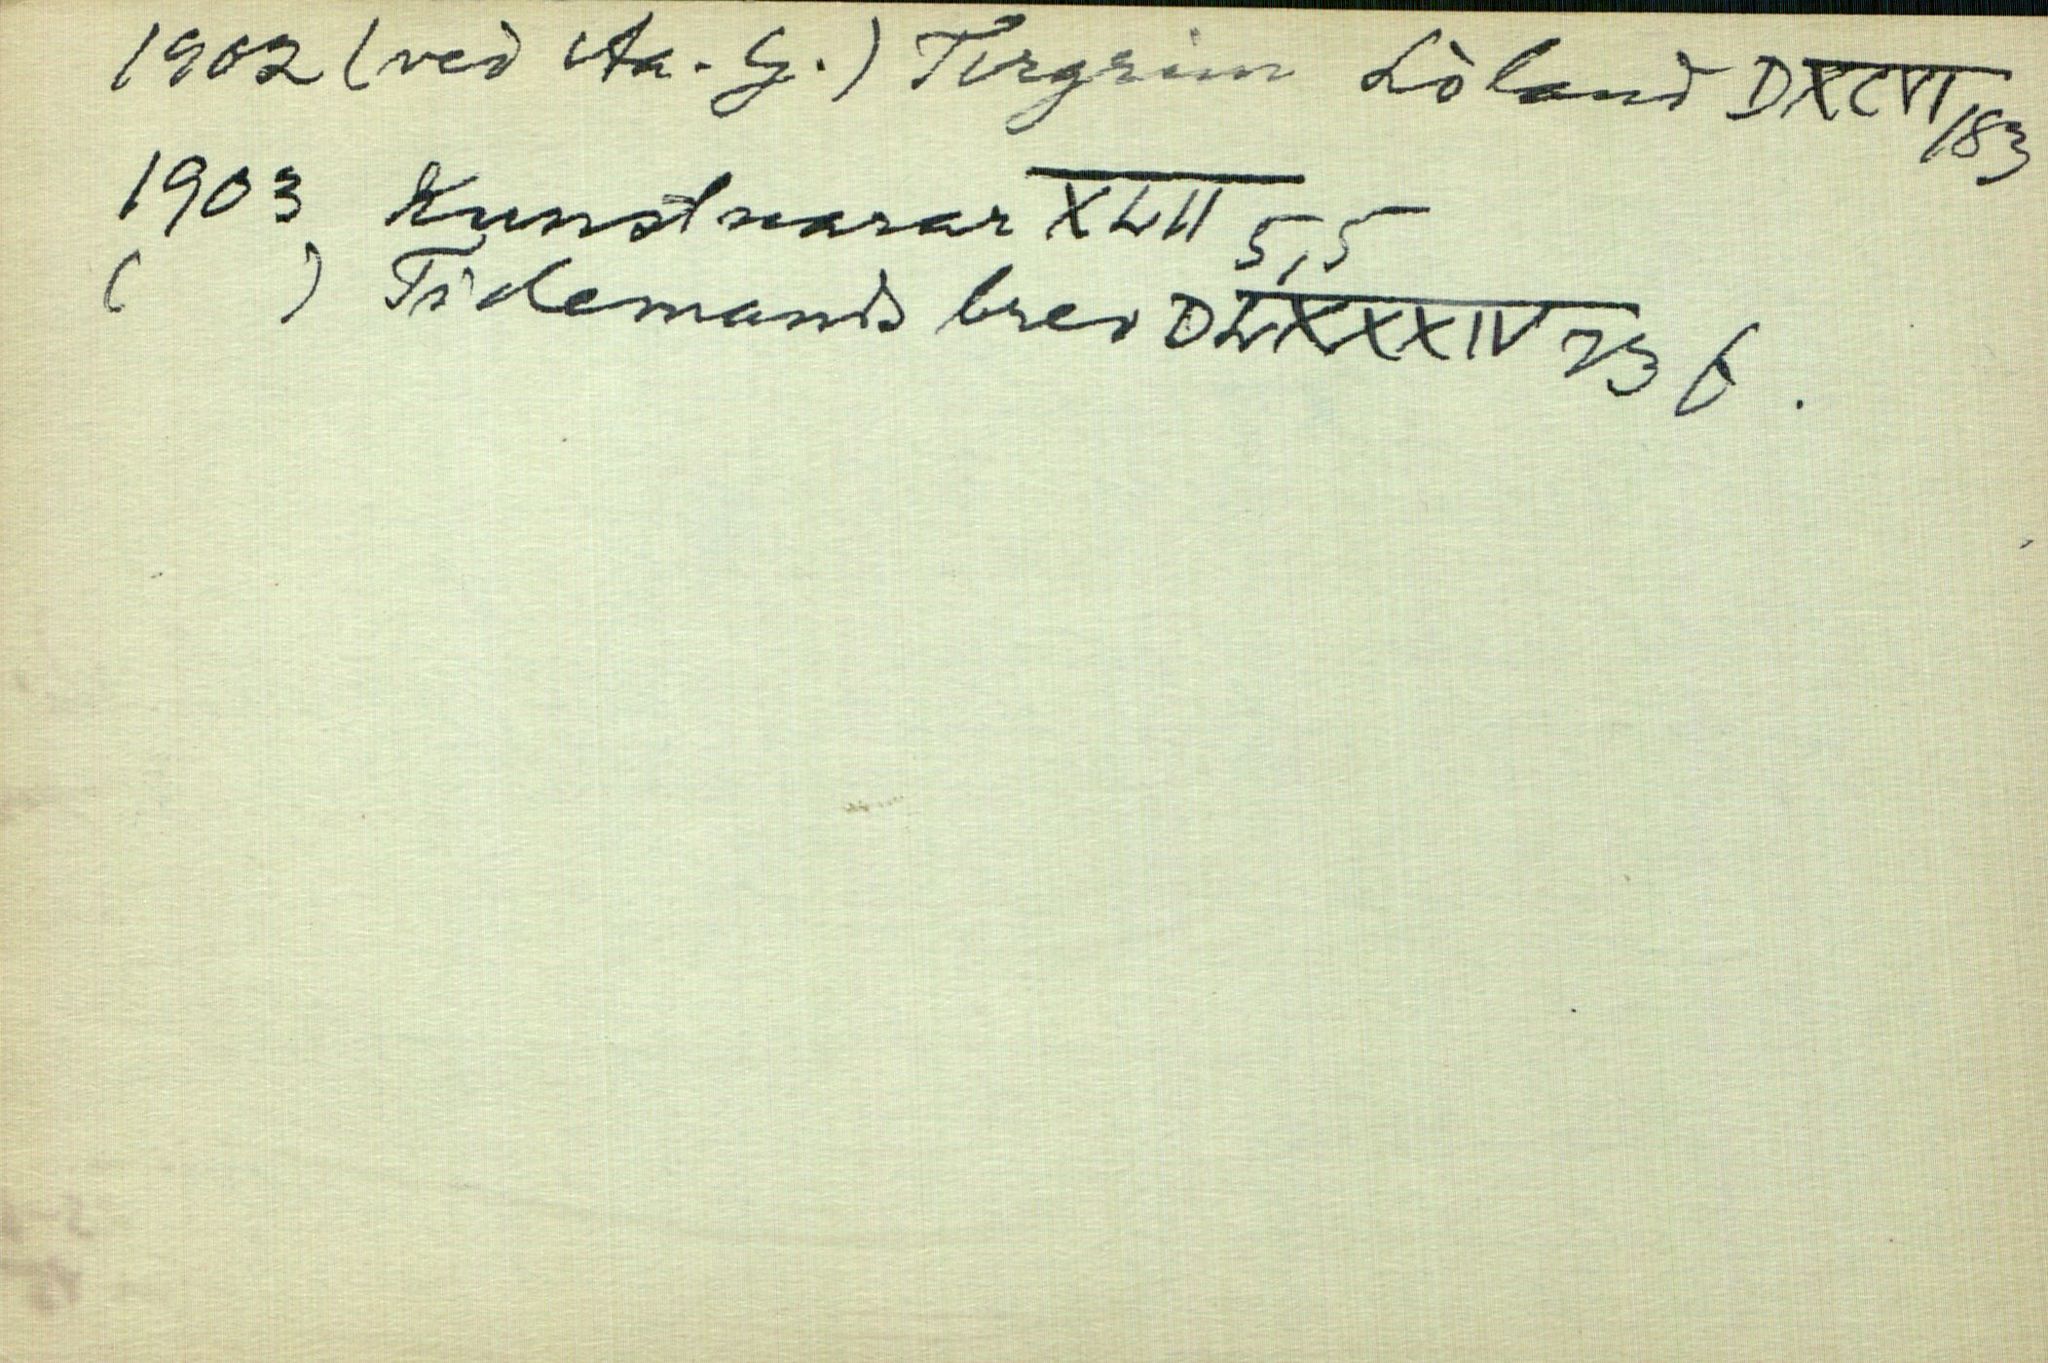 1902 (ved Aa. G.) Torgrim Löland DXCVI 183
1903 Kunstnarar XLII 5,5
( ) Tidemands brev DLXXXIV 73 f.